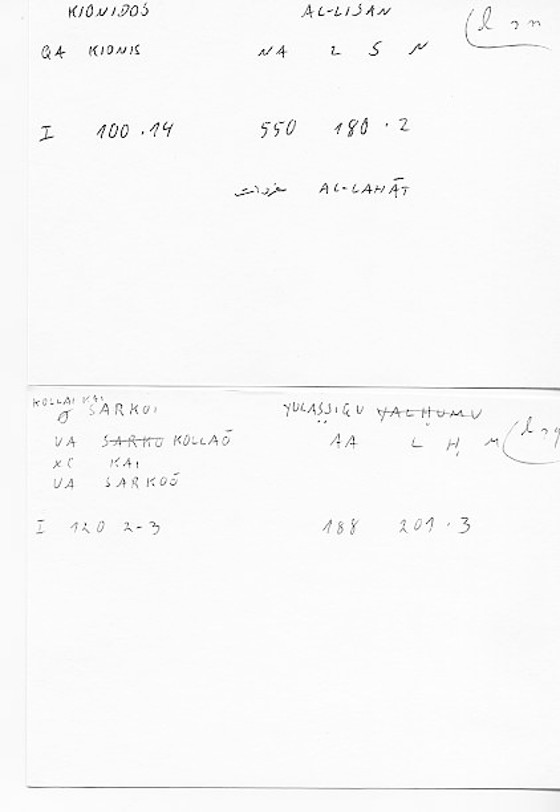 KIONIDOS AL-LISAN
QA KIONIS NA L S N
I 100.14 550 180.2
AL-LAHĀT
KOLLAI KAI SARKOI YULAṢṢIQU YALḤUMU
VA SARKO KOLLAŌ AA L Ḥ M
XC KAI
VA SARKOŌ
I 120 2-3 188 201.3